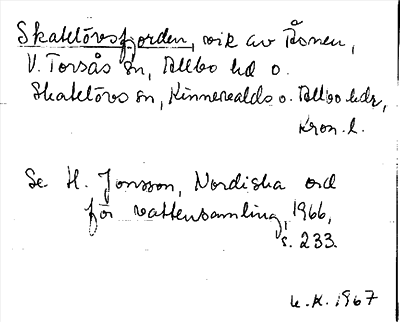 Skatelövsfjorden, vik av Åsnen,
V. Torsås sn, Allbo hd o.
Skatelövs sn, Kinnevalds o. Allbo hdr,
Kron. l.
Se H. Jonsson, Nordiska ord
för vattensamling, 1966,
s. 233.
L.K. 1967